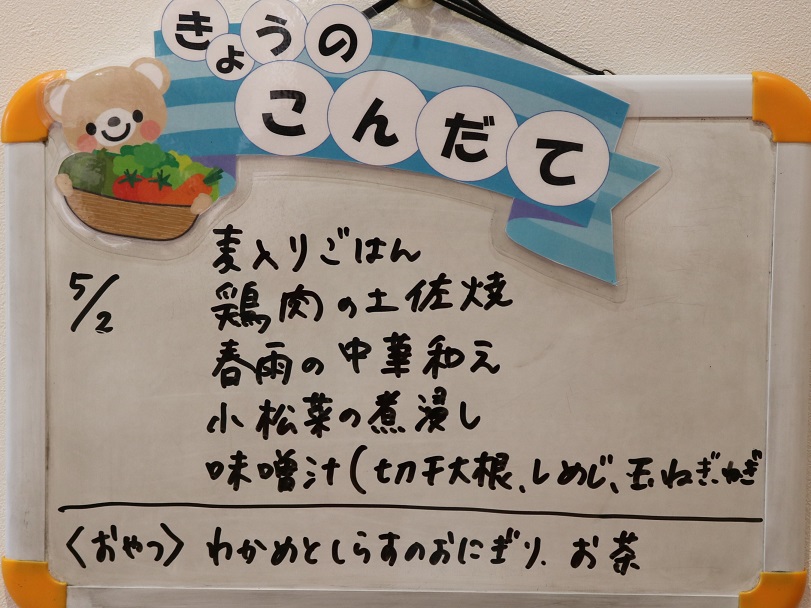 きょうの
こんだて
5/2
麦入りごはん
鶏肉の土佐焼
春雨の中華和え
小松菜の煮浸し
味噌汁(切干大根、しめじ、玉ねぎ、ねぎ
〈おやつ〉 わかめとしらすのおにぎり、お茶